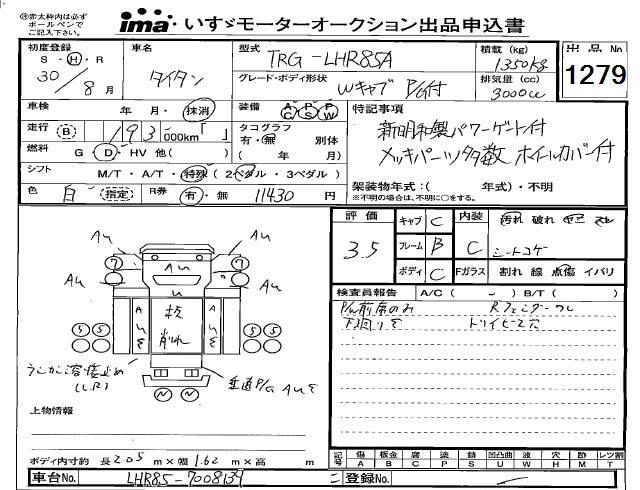 ㊟赤太枠内は必ず
ボールペンで
ご記入下さい。
ima いすゞモーターオークション出品申込書
初度登録 車名 型式 TRG-LHR85A 積載 (kg) 1350kg 出品 No
S・H・R 30年 8月 タイタン グレード・ボディ形状 Wキャブ P/G付 排気量 (cc) 3000cc 1279
車検 年 月・抹消 装備 AC PS PW 特記事項
走行 B 193,000km「 」 タコグラフ 有・無 別体 新明和製パワーゲート付
燃料 G・D・HV 他( ) ( 年 月) メッキパーツ多数 ホイールカバー付
シフト M/T・A/T・特殊 (2ペダル・3ペダル) 架装物年式:( 年式)・不明
色 白 指定 R券 有・無 11430円 ※不明の場合は、不明に〇をする。
評価 3.5 キャブ C 内装 C 汚れ 破れ ヤニ スレ
フレーム B シートコゲ
ボディ C Fガラス 割れ 線 点傷 イバリ
検査員報告 A/C ( - ) B/T ( )
Rフェンダーワレ
下回りサ トリイビス穴
AU AU
7 7
AU AU AU
板
削れ
5 5 5 5
うしかじ溶接止め
(L.R)
垂直P/G AUサ
N N
上物情報
ボディ内寸約 長2.05m×幅1.62m×高 m
記号 傷 A 板金 B 腐 C 塗 P 錆 S 凹凸曲 U 波 W 穴 H 跡 M レツ割 T
車台No. LHR85-7008139 ニ 登録No.